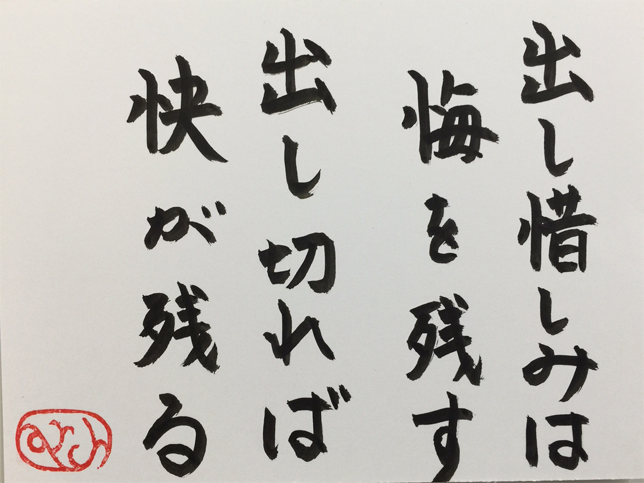 出し惜しみは
悔を残す
出し切れば
快が残る